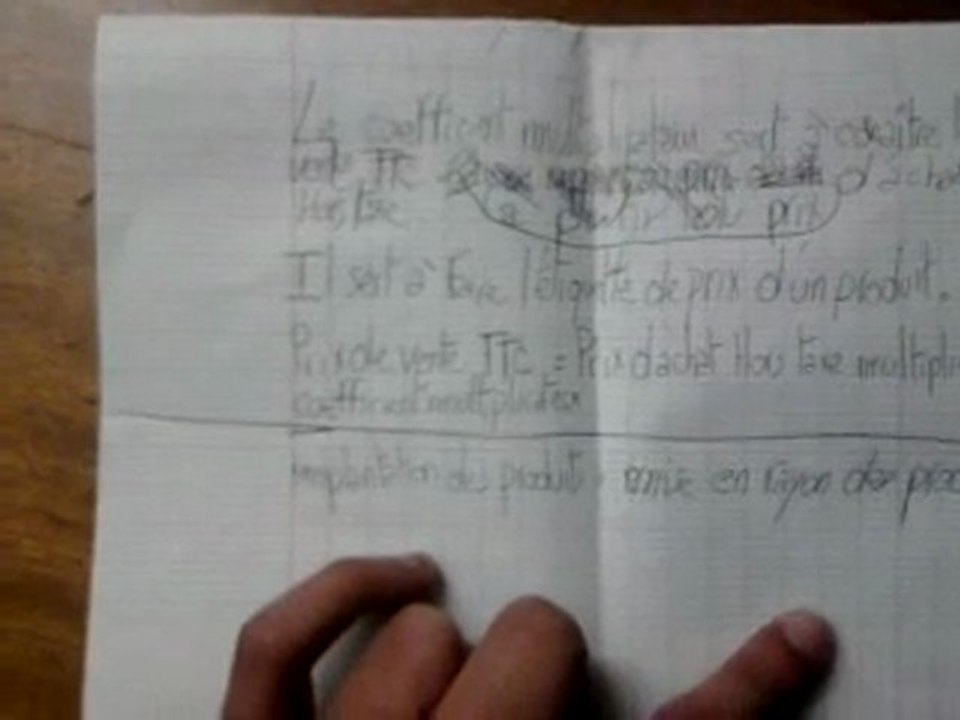 Le coefficient multiplicateur sert à conaître l
vente TTC d'acha
Hors taxe à partir du prix
Il sert à faire l'étiquette de prix d'un produit.
Prix de vente TTC = Prix d'achat Hors taxe multipli
coefficient multiplicateur
implantation des produits : mise en rayon des prod